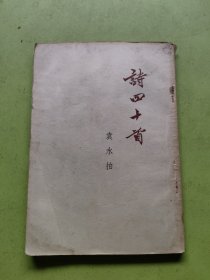 詩四十首
袁水拍